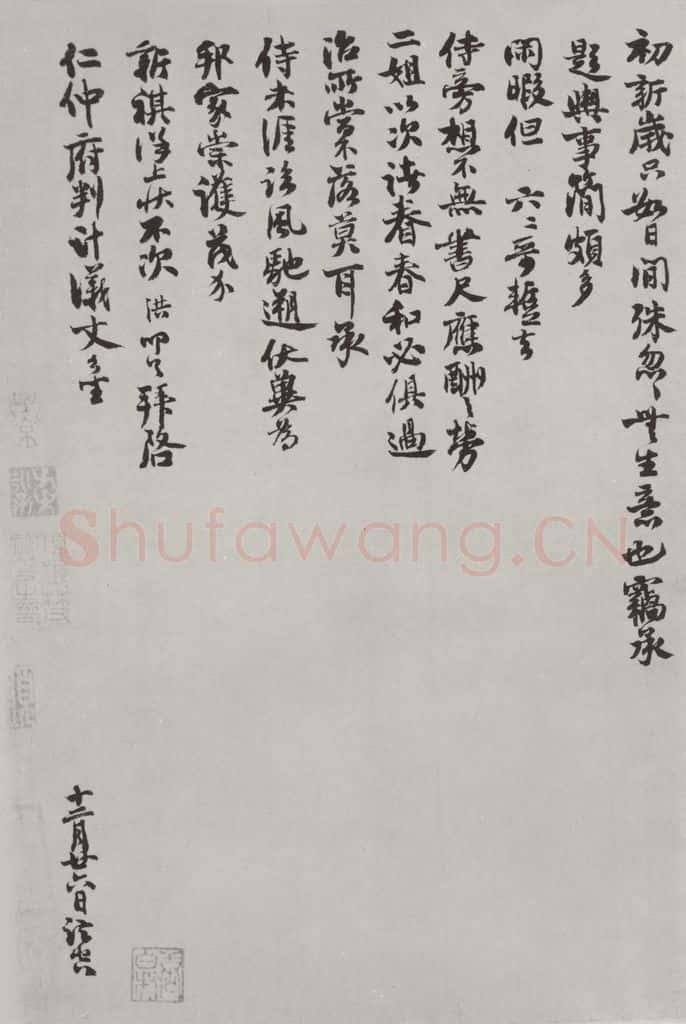 初新歲只數日間殊忽〻無生意也竊承
題輿事簡頗多
閑暇但 六二哥輒去
侍旁想不無書尺應酬之勞
二姐以次諸眷春和必俱過
治所當不落莫耳承
侍未涯臨風馳遡伏冀為
邦家崇護茂介
新祺謹上狀不次 洪 拜啓
仁仲府判計議丈
十二月廿六日
Shufawang.CN